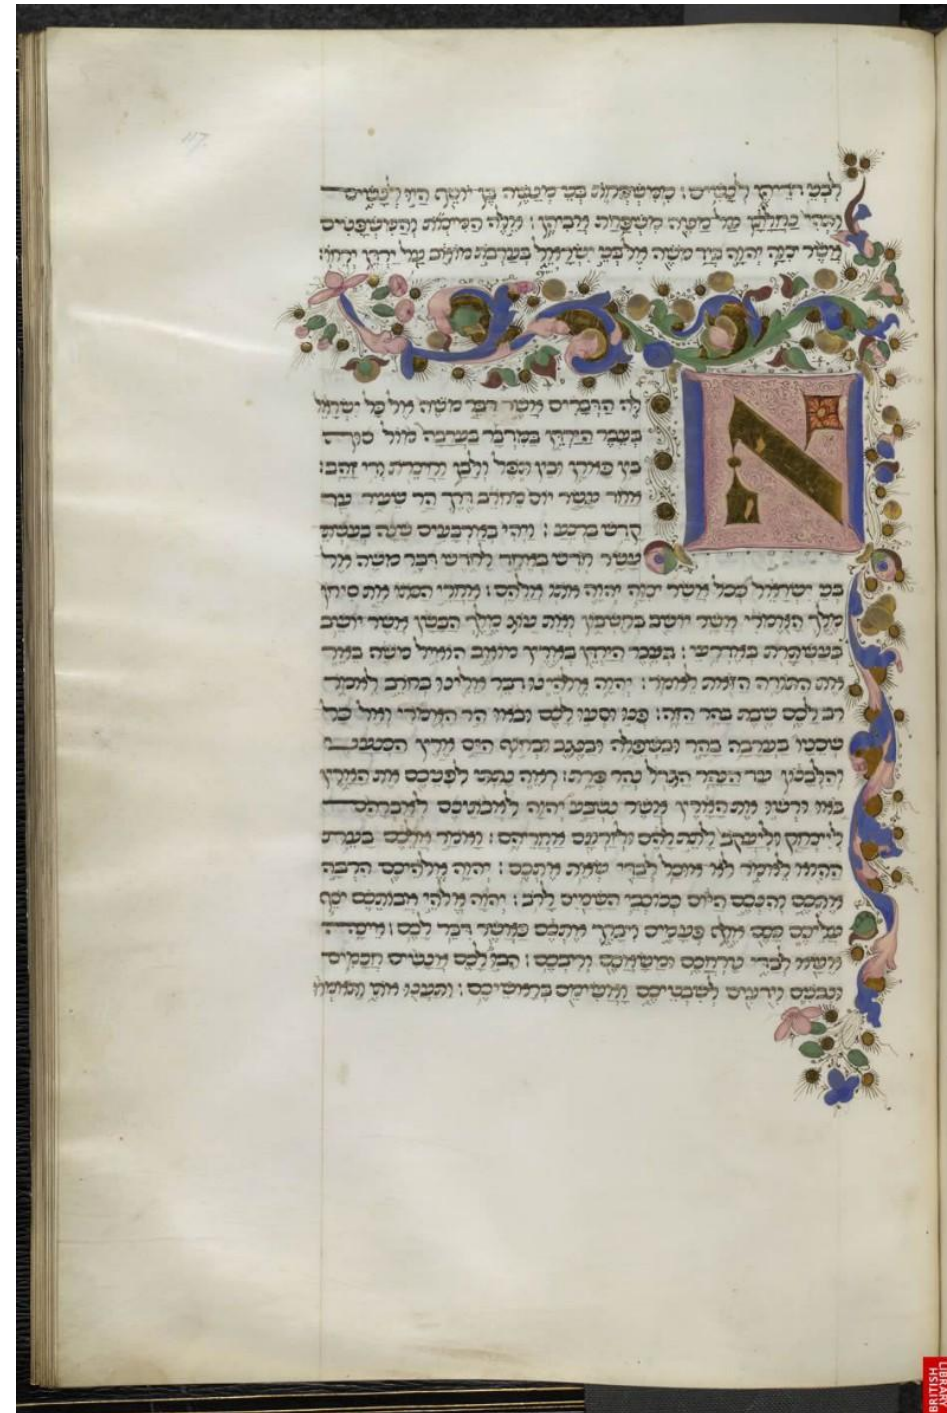 לבני דדיהן לנשים : ממשפחת בני מנשה בן יוסף היו לנשים
ותהי נחלתן על מטה משפחת אביהן : אלה המצות והמשפטים
אשר צוה יהוה ביד משה אל בני ישראל בערבת מואב על ירדן ירחו :
א
לה הדברים אשר דבר משה אל כל ישראל
בעבר הירדן במדבר בערבה מול סוף
בין פארן ובין תפל ולבן וחצרת ודי זהב :
אחד עשר יום מחרב דרך הר שעיר עד
קדש ברנע : ויהי בארבעים שנה בעשתי
עשר חדש באחד לחדש דבר משה אל
בני ישראל ככל אשר צוה יהוה אתו אלהם : אחרי הכתו את סיחן
מלך האמרי אשר יושב בחשבון ואת עוג מלך הבשן אשר יושב
בעשתרת באדרעי : בעבר הירדן בארץ מואב הואיל משה באר
את התורה הזאת לאמר : יהוה אלהינו דבר אלינו בחרב לאמר
רב לכם שבת בהר הזה : פנו וסעו לכם ובאו הר האמרי ואל כל
שכניו בערבה בהר ובשפלה ובנגב ובחוף הים ארץ הכנעני
והלבנון עד הנהר הגדל נהר פרת : ראה נתתי לפניכם את הארץ
באו ורשו את הארץ אשר נשבע יהוה לאבתיכם לאברהם
ליצחק וליעקב לתת להם ולזרעם אחריהם : ואמר אלכם בעת
ההוא לאמר לא אוכל לבדי שאת אתכם : יהוה אלהיכם הרבה
אתכם והנכם היום ככוכבי השמים לרב : יהוה אלהי אבותכם יסף
עליכם ככם אלף פעמים ויברך אתכם כאשר דבר לכם : איכה
אשא לבדי טרחכם ומשאכם וריבכם : הבו לכם אנשים חכמים
ונבנים וידעים לשבטיכם ואשימם בראשיכם : ותענו אתי ותאמרו
BRITISH LIBRARY